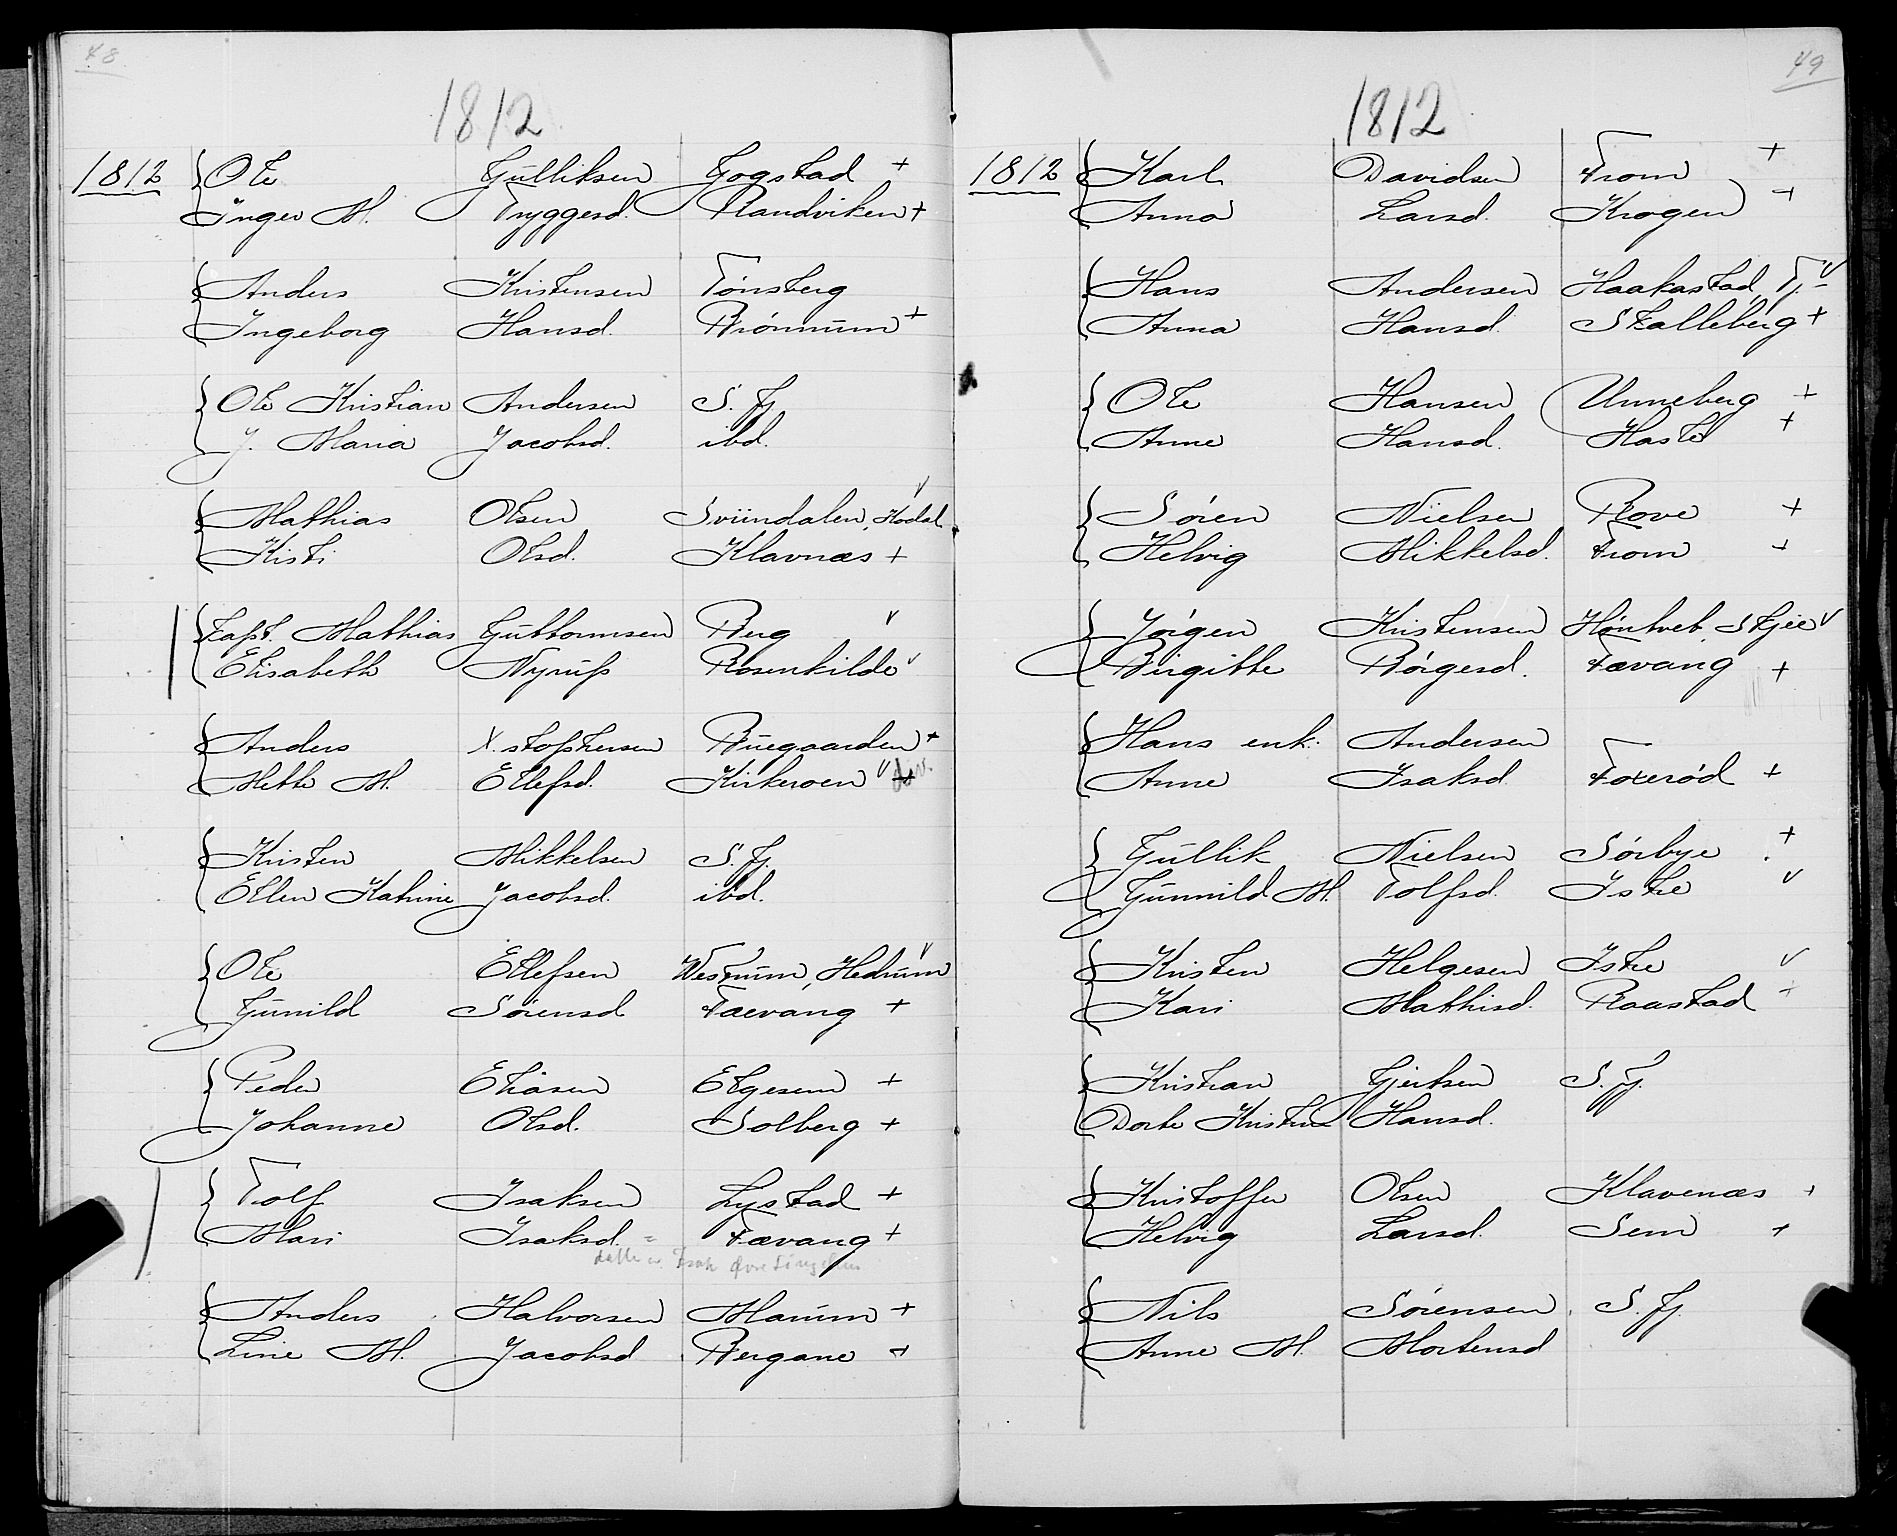 48
1812
1812 Ole Gulliksen Gogstad +
Inger M. Tryggesd. Randviken +
Anders Kristensen Tönsberg
Ingeborg Hansd. Brönnum +
Ole Kristian Andersen S. Fj.
J. Maria Jacobsd. ibd.
Mathias Olsen Svindalen, Kodal v
Kisti Olsd. Klavnæs +
Kapt. Mathias Guttormsen Berg v
Elisabeth Nyruss Rosenkilde v
Anders X.stophersen Buegaarden +
Mette M. Ellefsd. Kirkeroen v
Kristen Mikkelsen S. Fj.
Ellen Katrine Jacobsd. ibd.
Ole Ellefsen Westrum, Hedrum v
Gunild Sörensd Fævang +
Peder Eliasen Elgesem +
Johanne Olsd. Solberg +
Tolf Isaksen Lystad +
Mari Isaksd. = Fævang +
datter av Isak Øvre
Anders Halvorsen Marum +
Line M. Jacobsd Bergane +
49
1812
1812 Karl Davidsen From +
Anna Larsd. Krogen +
Hans Andersen Haakastad, Tj. v
Anna Hansd. Skalleberg +
Ole Hansen Unneberg +
Anne Hansd. Hasle +
Sören Nielsen Rove +
Helvig Mikkelsd. From +
Jörgen Kristensen Höntvet, Skjee v
Birgitte Börgesd. Fævang +
Hans enk: Andersen
Anne Isaksd. Foxeröd +
Gullik Nielsen Sörbye +
Gunnild M. Tolfsd. Istre v
Kristen Helgesen Istre v
Kari Mathisd. Raastad +
Kristian Gjertsen S. Fj.
Dorte Kristine Hansd.
Kristoffer Olsen Klavenæs +
Helvig Larsd. Sem +
Nils Sörensen S. Fj.
Anne M. Mortensd